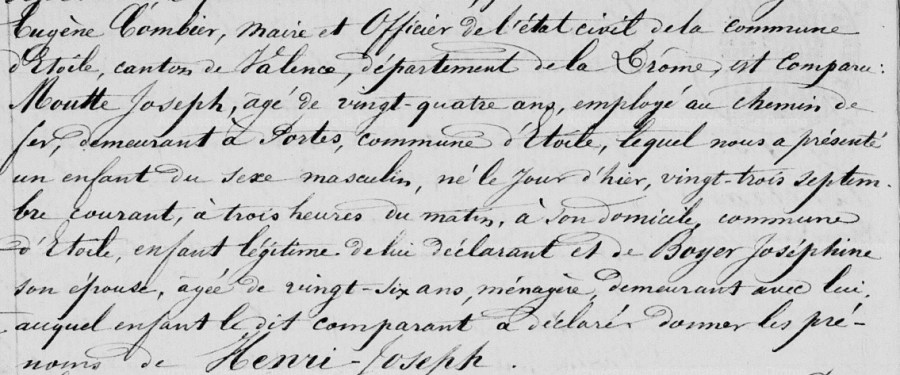 Eugène Combier, Maire et Officier de l'état civil de la commune
d'Etoile, canton de Valence, département de la Drôme, est comparu:
Moutte Joseph, âgé de vingt-quatre ans, employé au chemin de
fer, demeurant à Portes, commune d'Etoile, lequel nous a présenté
un enfant du sexe masculin, né le jour d'hier, vingt-trois septem-
bre courant, à trois heures du matin, à son domicile, commune
d'Etoile, enfant légitime de lui déclarant et de Boyer Joséphine
son épouse, âgée de vingt-six ans, ménagère, demeurant avec lui,
auquel enfant le dit comparant a déclaré donner les pré-
noms de Henri-Joseph.